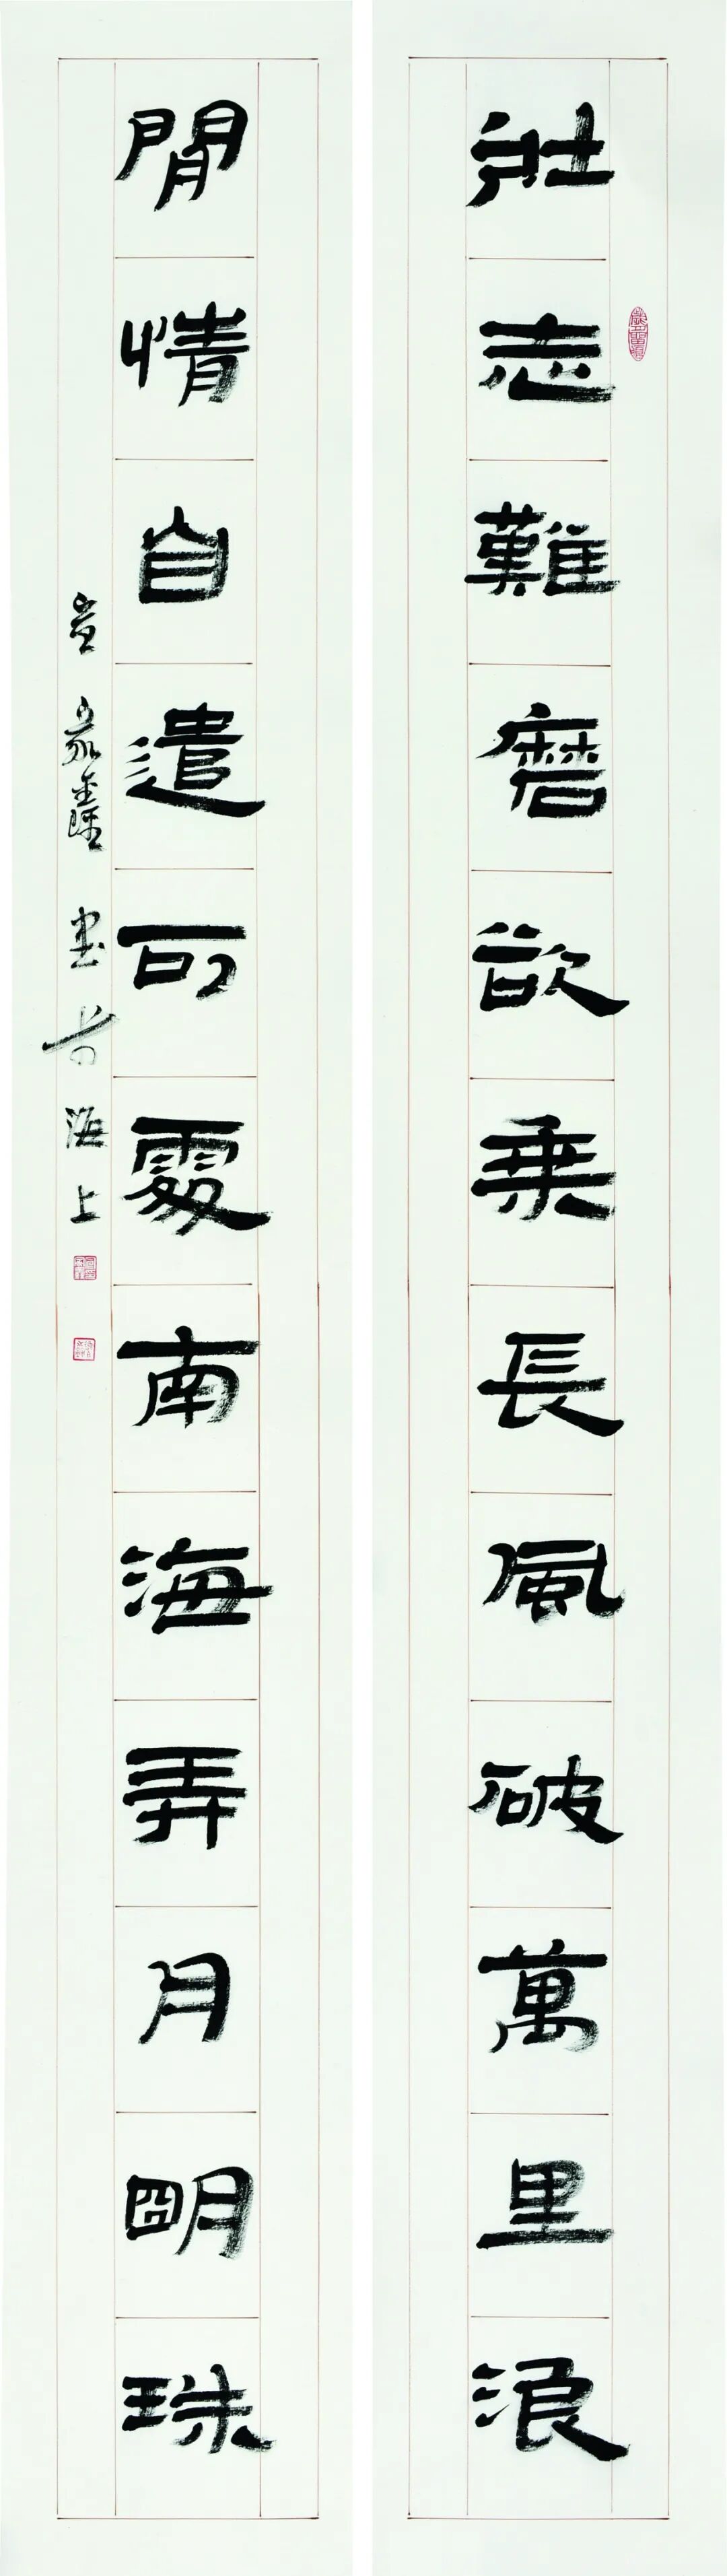 壯志難磨欲乘長風破萬里浪
閒情自遣可處南海弄月明珠
書於海上